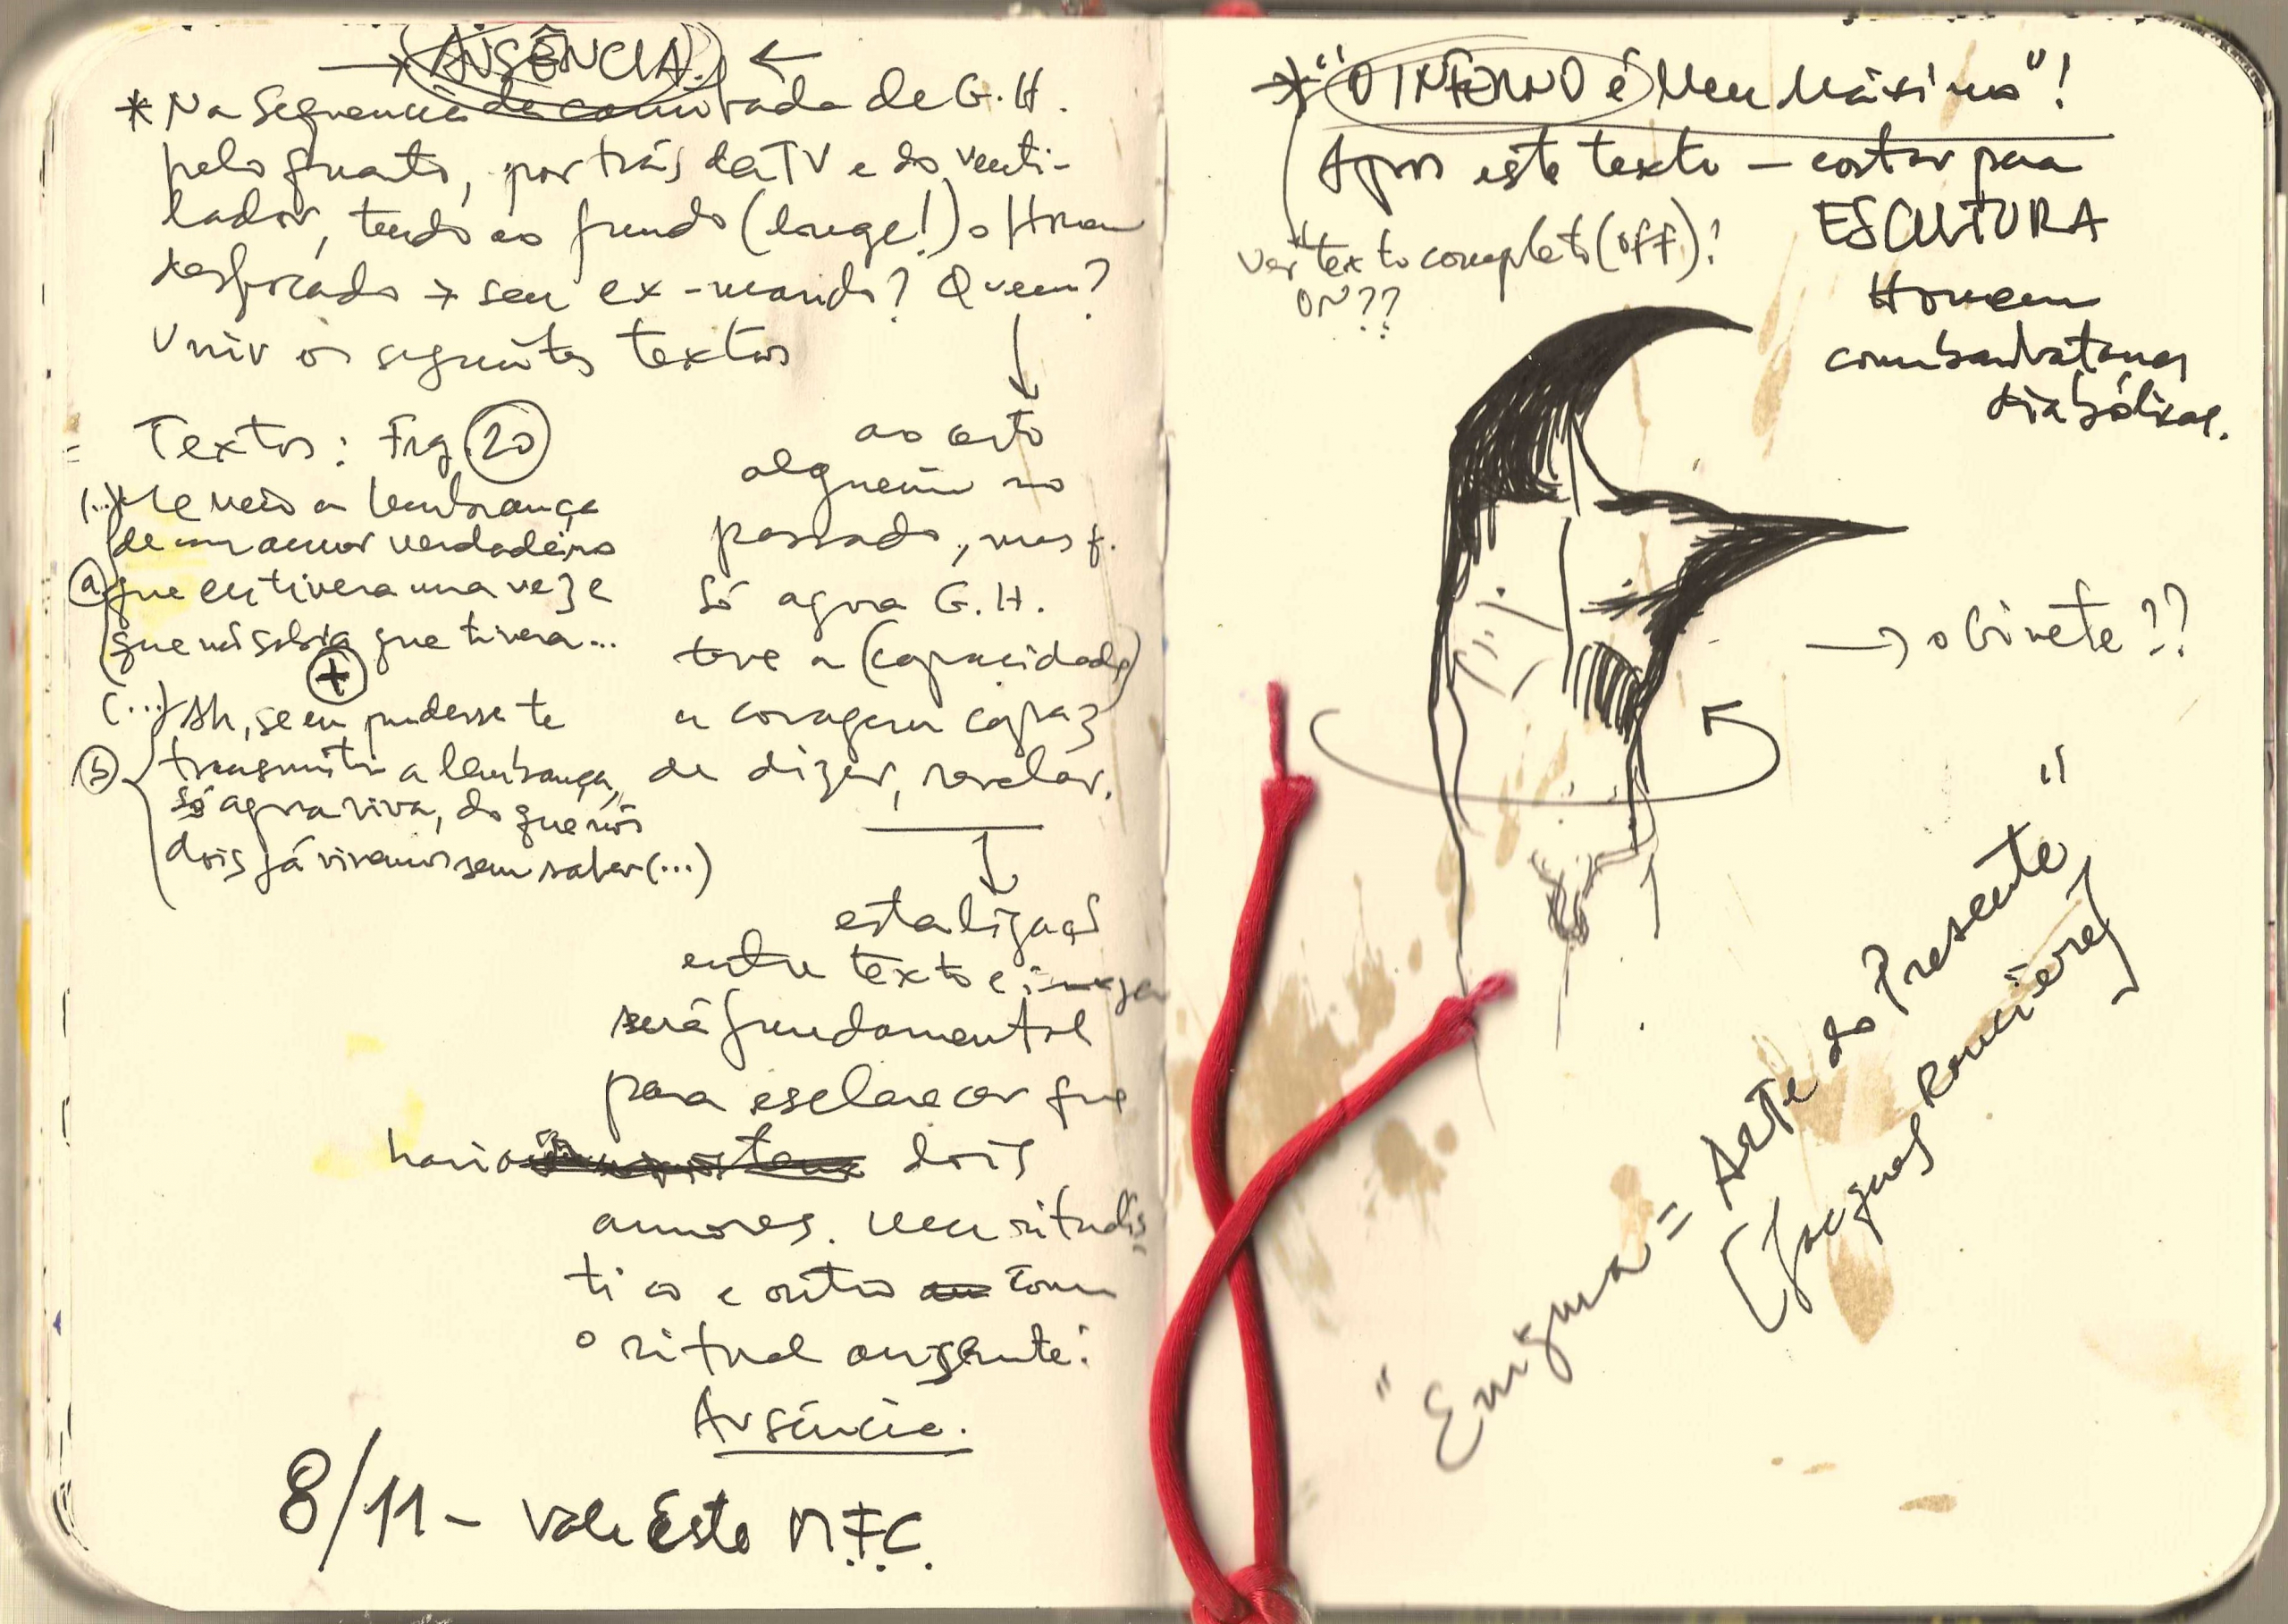 → AUSÊNCIA. ←
* Na sequencia da caminhada de G.H.
pelo quarto, por trás da TV e do venti-
lador, tendo ao fundo (longe!) o Homem
desfocado → seu ex-marido? Quem?
Unir os seguintes textos
Textos: Frg. 20
(...) Me veio a lembrança
de um amor verdadeiro
a que eu tivera uma vez e
que não sabia que tivera...
+
(...) Ah, se eu pudesse te
b transmitir a lembrança,
só agora viva, do que nós
dois já vivemos sem saber (...)
ao certo
alguém no
passado, mas q.
só agora G.H.
teve a (capacidade)
a coragem capaz
de dizer, revelar.
esta ligação
entre texto e imagem
será fundamental
para esclarecer que
havia dois
amores. Um ritualís
tico e outro com
o ritual ausente:
Ausência.
8/11 - Vale Este M.F.C.
* "O INFERNO é Meu Máximo"!
Após este texto — cortar para
ESCULTURA
Homem
com barbatanas
diabólicas.
ver texto completo (off)!
ON??
→ o Ginete??
"Enigma = Arte do Presente"
[Jacques Rancière]